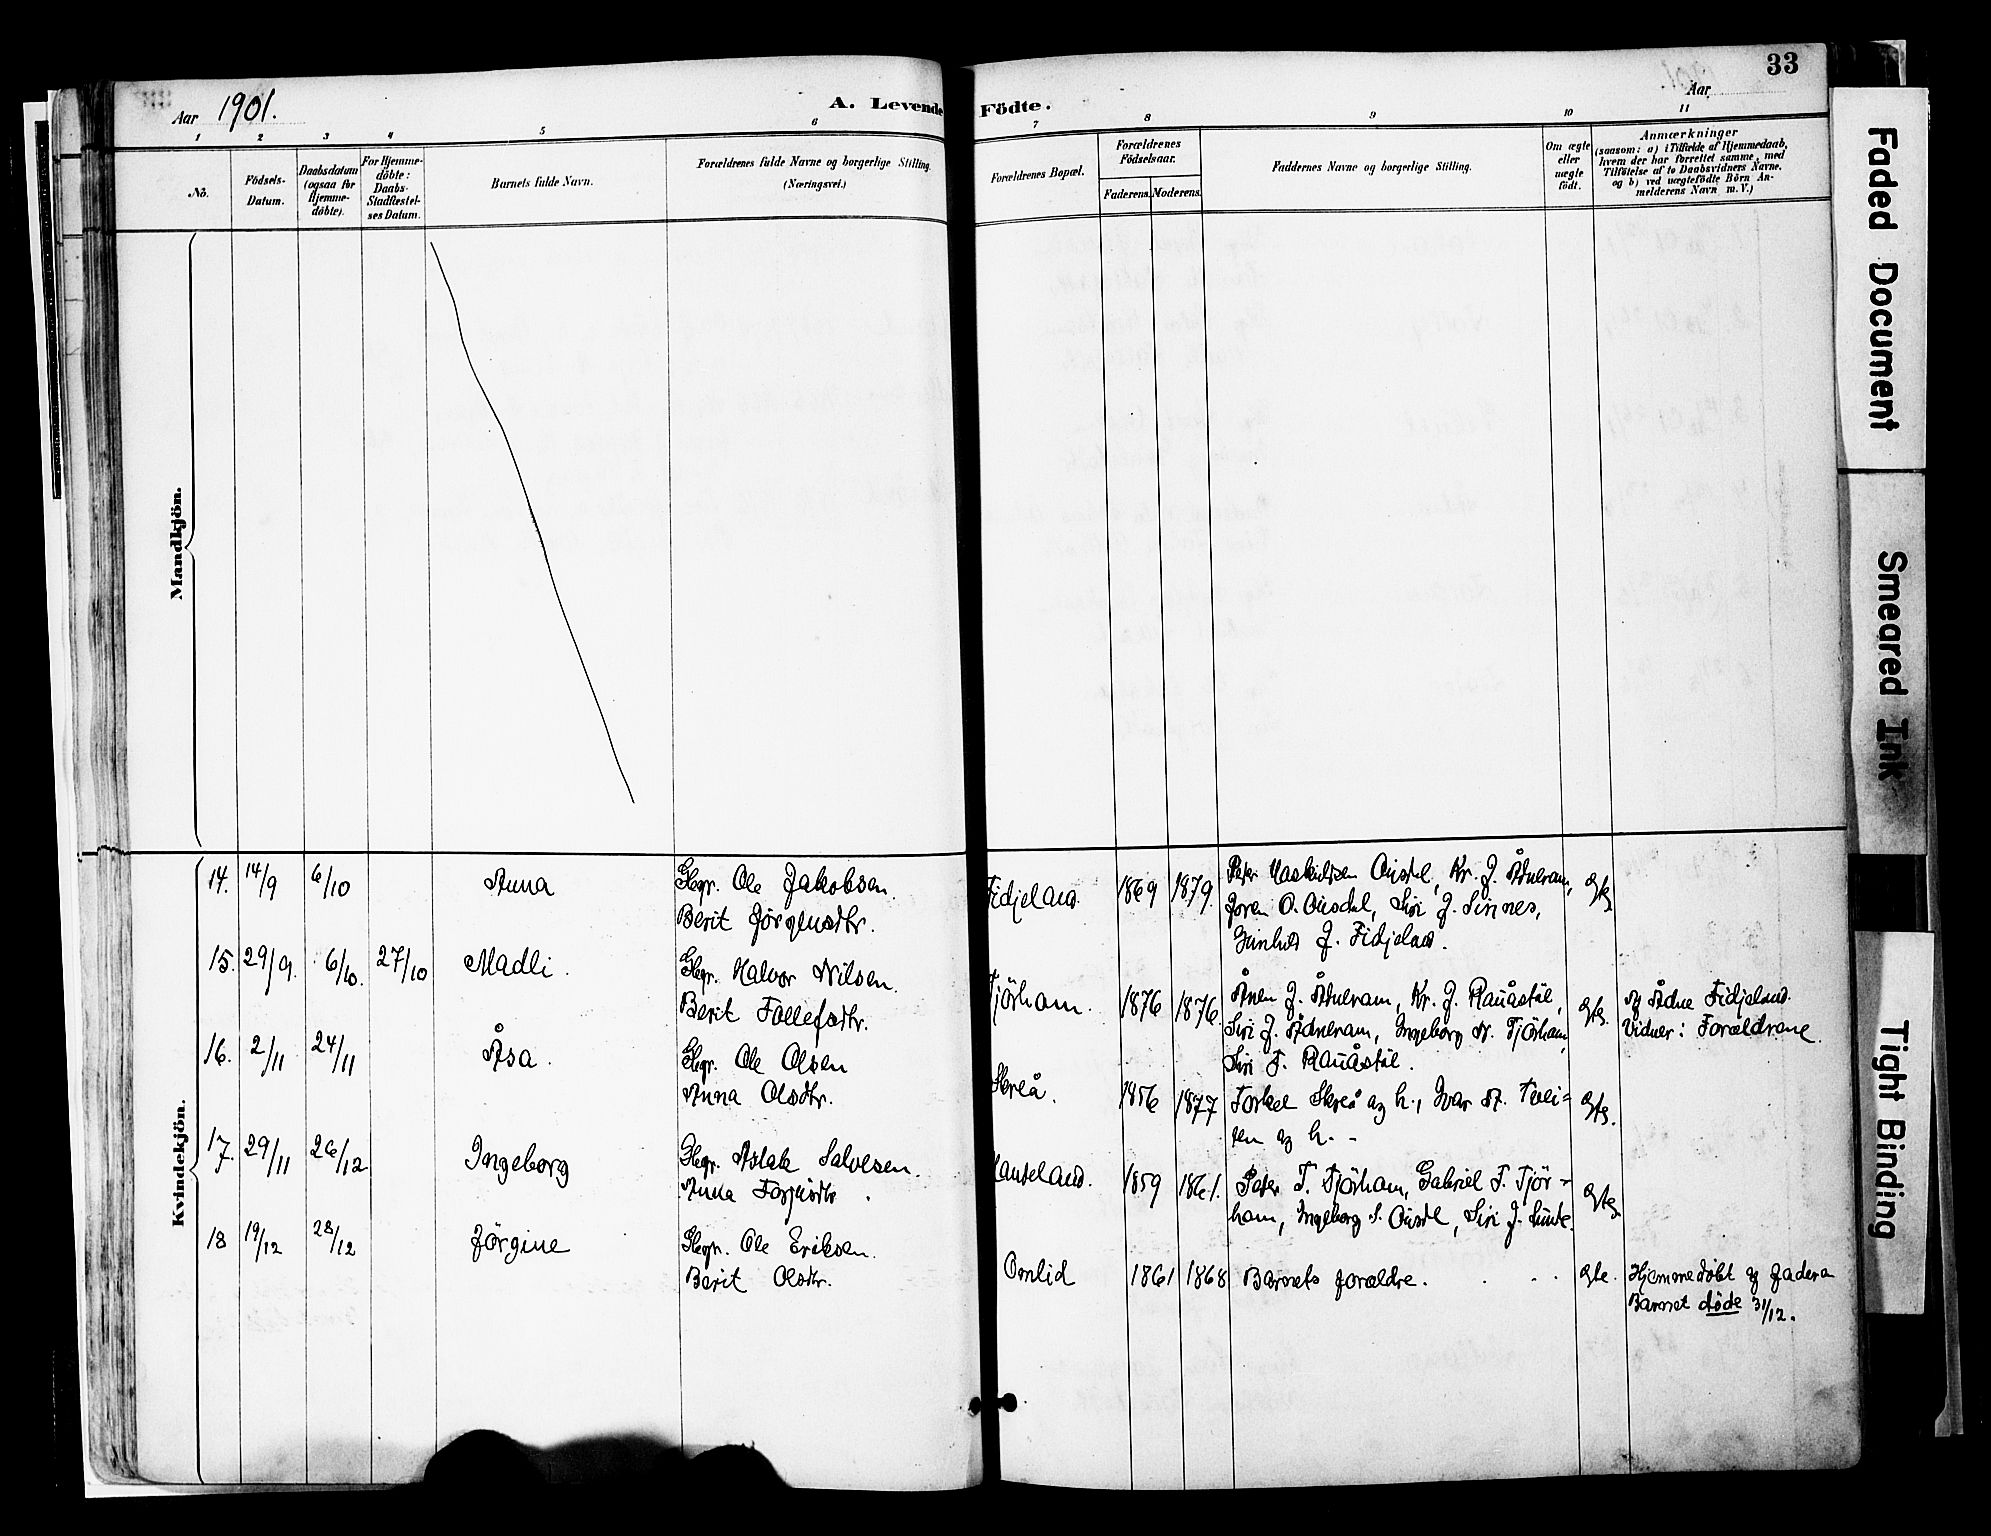 33
Aar 1901.
A. Levende Födte.
Aar
1 2 3 4 5 6 7 8 9 10 11
No.
Födsels-
Datum.
Daabsdatum
(ogsaa for
Hjemme-
döbte).
For Hjemme-
döbte:
Daabs-
Stadfæstel-
ses Datum.
Barnets fulde Navn.
Forældrenes fulde Navne og borgerlige Stilling.
(Næringsvei.)
Forældrenes Bopæl.
Forældrenes
Födselsaar.
Faderens. Moderens.
Faddernes Navne og borgerlige Stilling.
Om ægte
eller
uægte
födt.
Anmærkninger
(saasom: a) i Tilfælde af Hjemmedaab,
hvem der har forrettet samme, med
Tilföielse af to Daabsvidners Navne,
og b) ved uægtefödte Börn An-
melderens Navn m. V.)
Mandkjön.
Kvindekjön.
14. 14/9 6/10 Anna
Gbgr. Ole Jakobsen.
Berit Jörgensdtr.
Fidjeland. 1869 1879.
Kr. J. Ådneram,
Joren O. Ousdal, Siri J. Sirines,
Gunhild J. Fidjeland.
ægte
15. 29/9. 6/10. 27/10 Madli.
Gbgr. Halvor Nilsen.
Berit Tollefsdtr.
Tjörham. 1876 1876.
Ånen J. Ådneram, Kr. J. Rauåstöl,
Siri J. Ådneram, Ingeborg N. Tjörham,
Siri T. Rauåstöl.
ægte.
Af Ådne Fidjeland.
Vidner: Forældrene.
16. 2/11 24/11 Åsa.
Gbgr. Ole Olsen
Anna Olsdtr.
Skreå. 1856 1877
Torkel Skreå og h., Ivar A. Tvei=
ten og h. -
ægte.
17. 29/11 26/12 Ingeborg
Gbgr. Aslak Salvesen.
Anna
1859 1861.
Peter T. Tjörham, Gabriel T. Tjör-
ham, Ingeborg S. Ousdal, Siri J.
ægte
18 19/12 28/12 Jörgine
Gbgr. Ole Eriksen.
Berit Olsdtr.
Omlid 1861 1868
Barnets forældre.
ægte.
Hjemmedöbt af faderen
Barnet döde 31/12.
Faded Document
Smeared Ink
Tight Binding